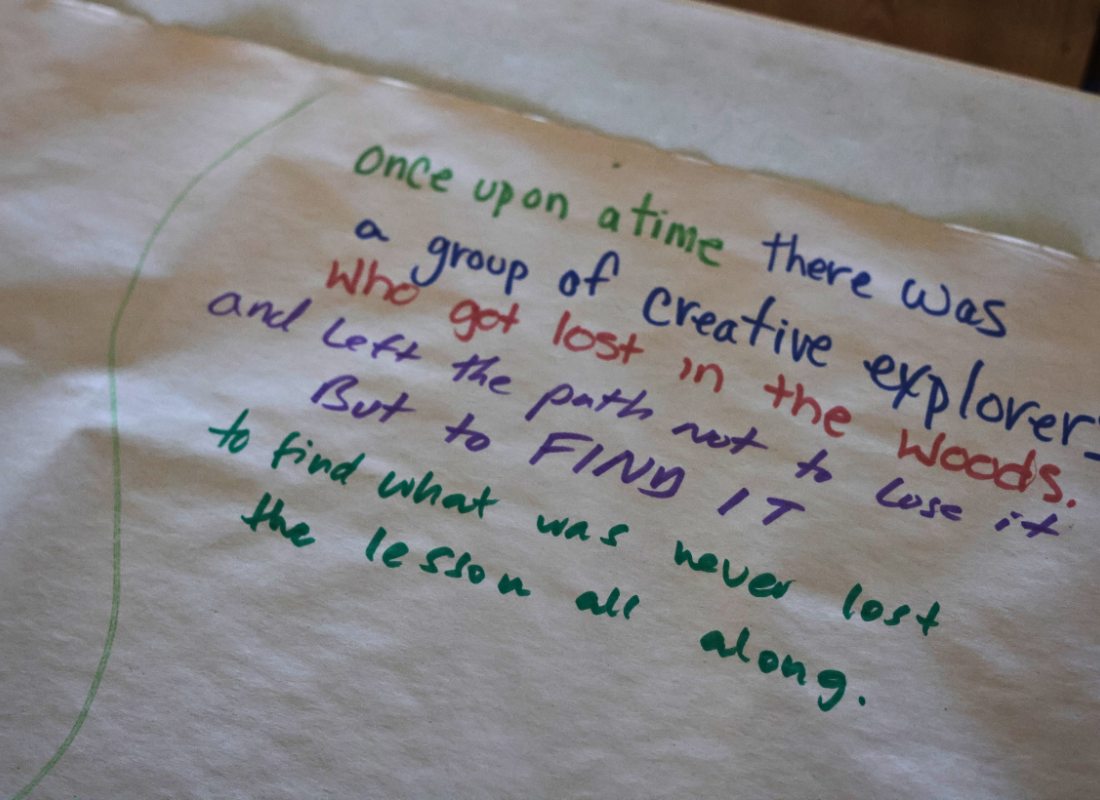 once upon a time there was
a group of creative explorers
Who got lost in the Woods.
and Left the path not to Lose it
But to FIND IT
to find what was never lost
the lesson all along.